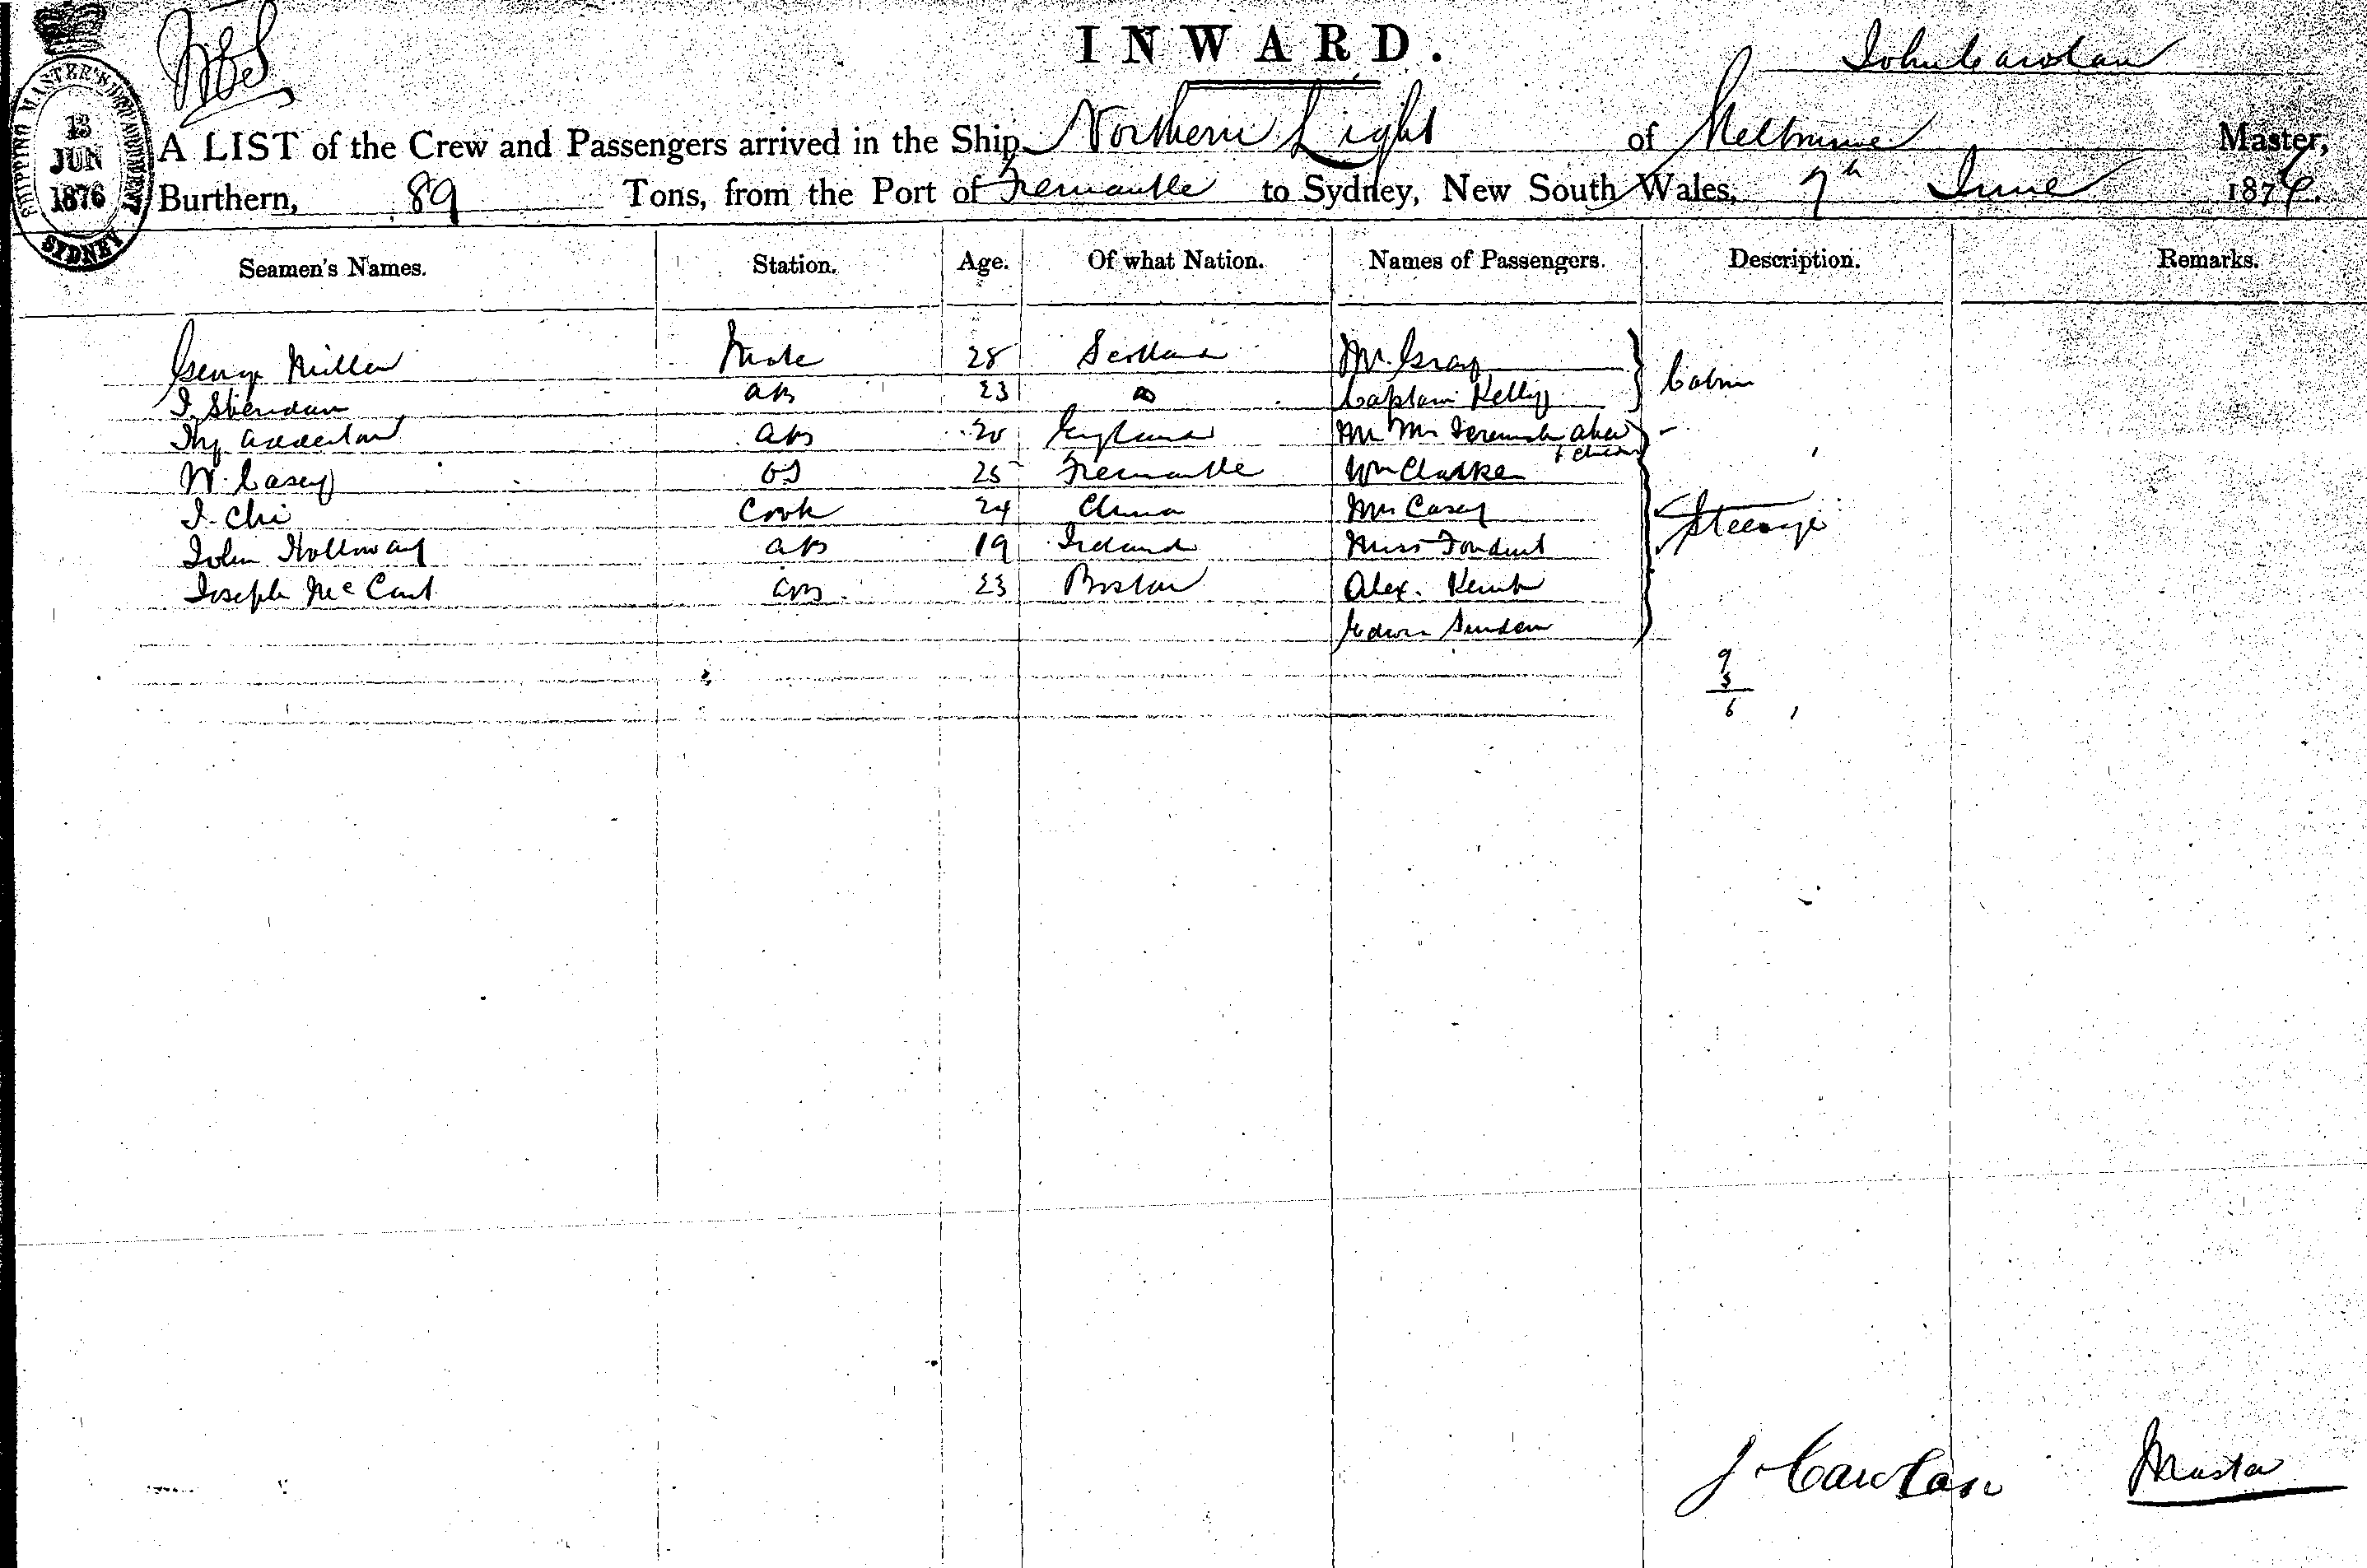 INWARD.
John Carolan
A LIST of the Crew and Passengers arrived in the Ship Northern Light of Melbourne Master,
Burthern, 89 Tons, from the Port of Fremantle to Sydney, New South Wales, 7th June 1876.
SHIPPING MASTER'S DEPARTMENT
13
JUN
1876
SYDNEY
Seamen's Names. Station. Age. Of what Nation. Names of Passengers. Description. Remarks.
George Miller Mate 28 Scotland Mr. Gray
J. Sheridan AB 23 Do Captain Kelly Cabin
AB 20 England Mr Mrs
W. Casey OS 25 Fremantle Wm Clarke
J. Chi Cook 24 China Mrs Casey Steerage
John Holloway AB 19 Ireland Miss
Joseph AB 23 Boston Alex.
Edwin
9
3
6
J. Carolan Master